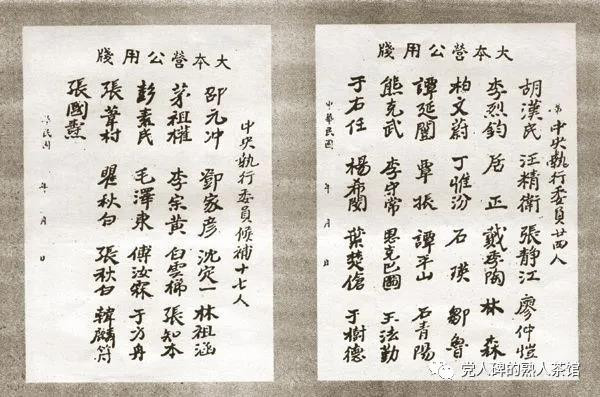 大本營公用牋
中央執行委員廿四人
胡漢民 汪精衛 張靜江 廖仲愷
李烈鈞 居正 戴季陶 林森
柏文蔚 丁惟汾 石瑛 鄒魯
譚延闓 覃振 譚平山 石青陽
熊克武 李守常 恩克巴圖 王法勤
于右任 楊希閔 葉楚傖 于樹德
中華民國 年 月 日
大本營公用牋
中央執行委員候補十七人
邵元冲 鄧家彥 沈定一 林祖涵
茅祖權 李宗黃 白雲梯 張知本
彭素民 毛澤東 傅汝霖 于方舟
張葦村 瞿秋白 張秋白 韓麟符
張國燾
民國 年 月 日
党人碑的熟人茶馆